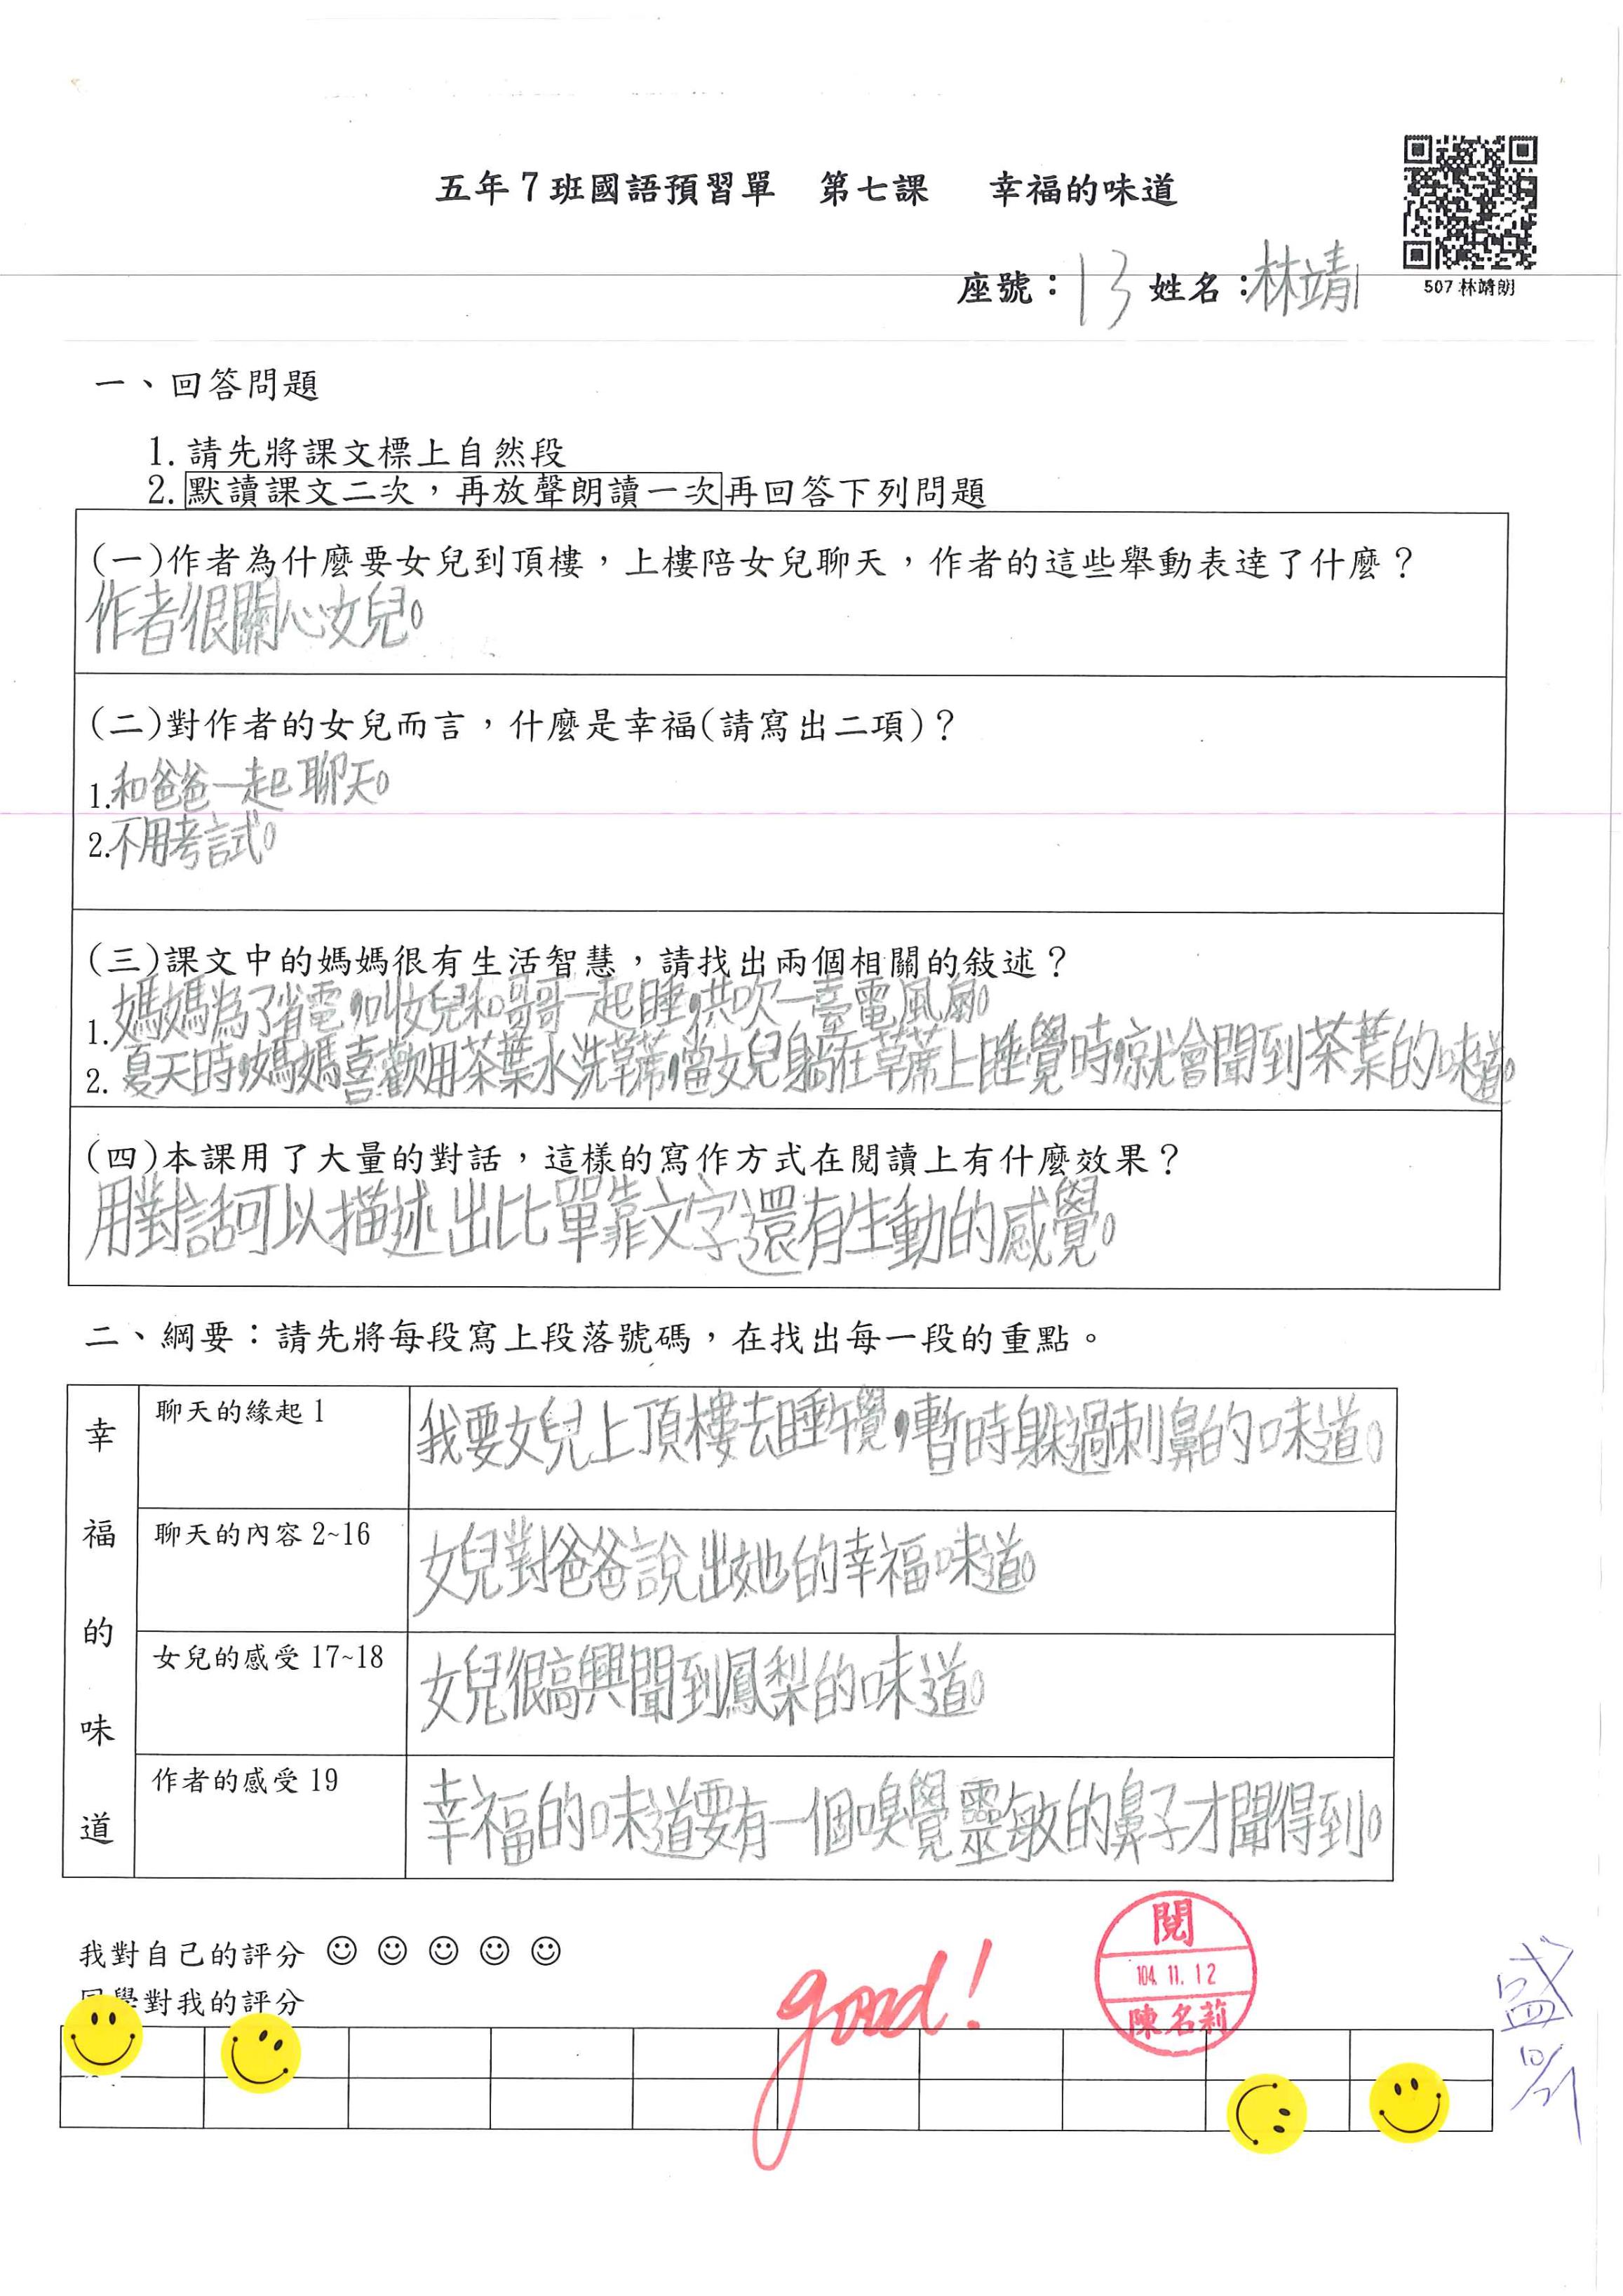 五年7班國語預習單 第七課 幸福的味道
507 林靖朗
座號：13 姓名：林靖
一、回答問題
1. 請先將課文標上自然段
2. 默讀課文二次，再放聲朗讀一次再回答下列問題
(一)作者為什麼要女兒到頂樓，上樓陪女兒聊天，作者的這些舉動表達了什麼？
作者很關心女兒。
(二)對作者的女兒而言，什麼是幸福(請寫出二項)？
1.和爸爸一起聊天。
2.不用考試。
(三)課文中的媽媽很有生活智慧，請找出兩個相關的敘述？
1.媽媽為了省電，叫女兒和哥哥一起睡，共吹一臺電風扇。
2. 夏天時，媽媽喜歡用茶葉水洗草蓆，當女兒躺在草蓆上睡覺時，就會聞到茶葉的味道。
(四)本課用了大量的對話，這樣的寫作方式在閱讀上有什麼效果？
用對話可以描述出比單靠文字還有生動的感覺。
二、綱要：請先將每段寫上段落號碼，在找出每一段的重點。
幸福的味道
聊天的緣起 1
我要女兒上頂樓去睡午覺，暫時躲過刺鼻的味道。
聊天的內容 2~16
女兒對爸爸說出她的幸福味道。
女兒的感受 17~18
女兒很高興聞到鳳梨的味道。
作者的感受 19
幸福的味道要有一個嗅覺靈敏的鼻子才聞得到。
我對自己的評分
同學對我的評分
good!
閱
104. 11. 12
陳名莉